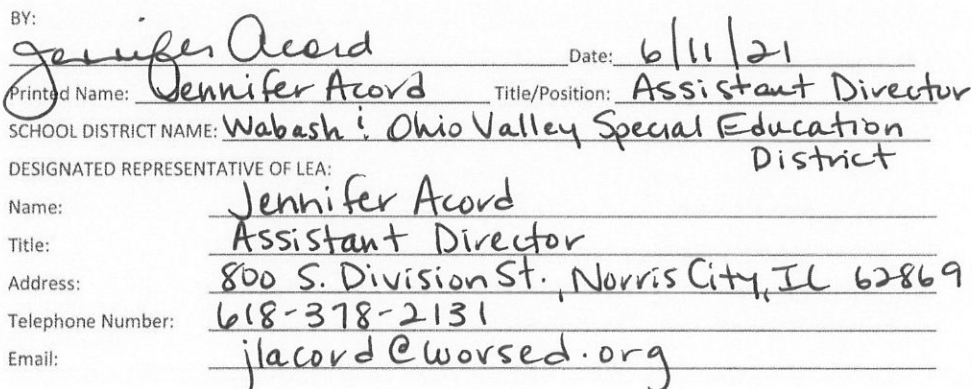 BY:
Jennifer Acord Date: 6/11/21
Printed Name: Jennifer Acord Title/Position: Assistant Director
SCHOOL DISTRICT NAME: Wabash & Ohio Valley Special Education
District
DESIGNATED REPRESENTATIVE OF LEA:
Name: Jennifer Acord
Title: Assistant Director
Address: 800 S. Division St., Norris City, IL 62869
Telephone Number: 618-378-2131
Email: jlacord@wovsed.org